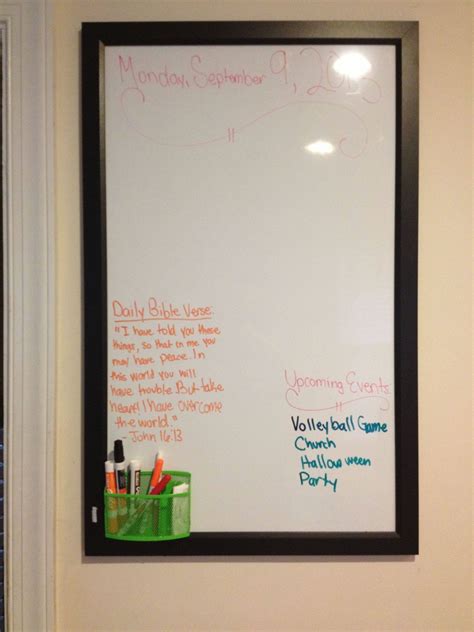 Monday, September 9, 2013
Daily Bible Verse:
"I have told you these
things, so that in me you
may have peace. In
this world you will
have trouble. But take
heart! I have overcome
the world."
- John 16:13
Upcoming Events:
Volleyball Game
Church
Halloween
Party